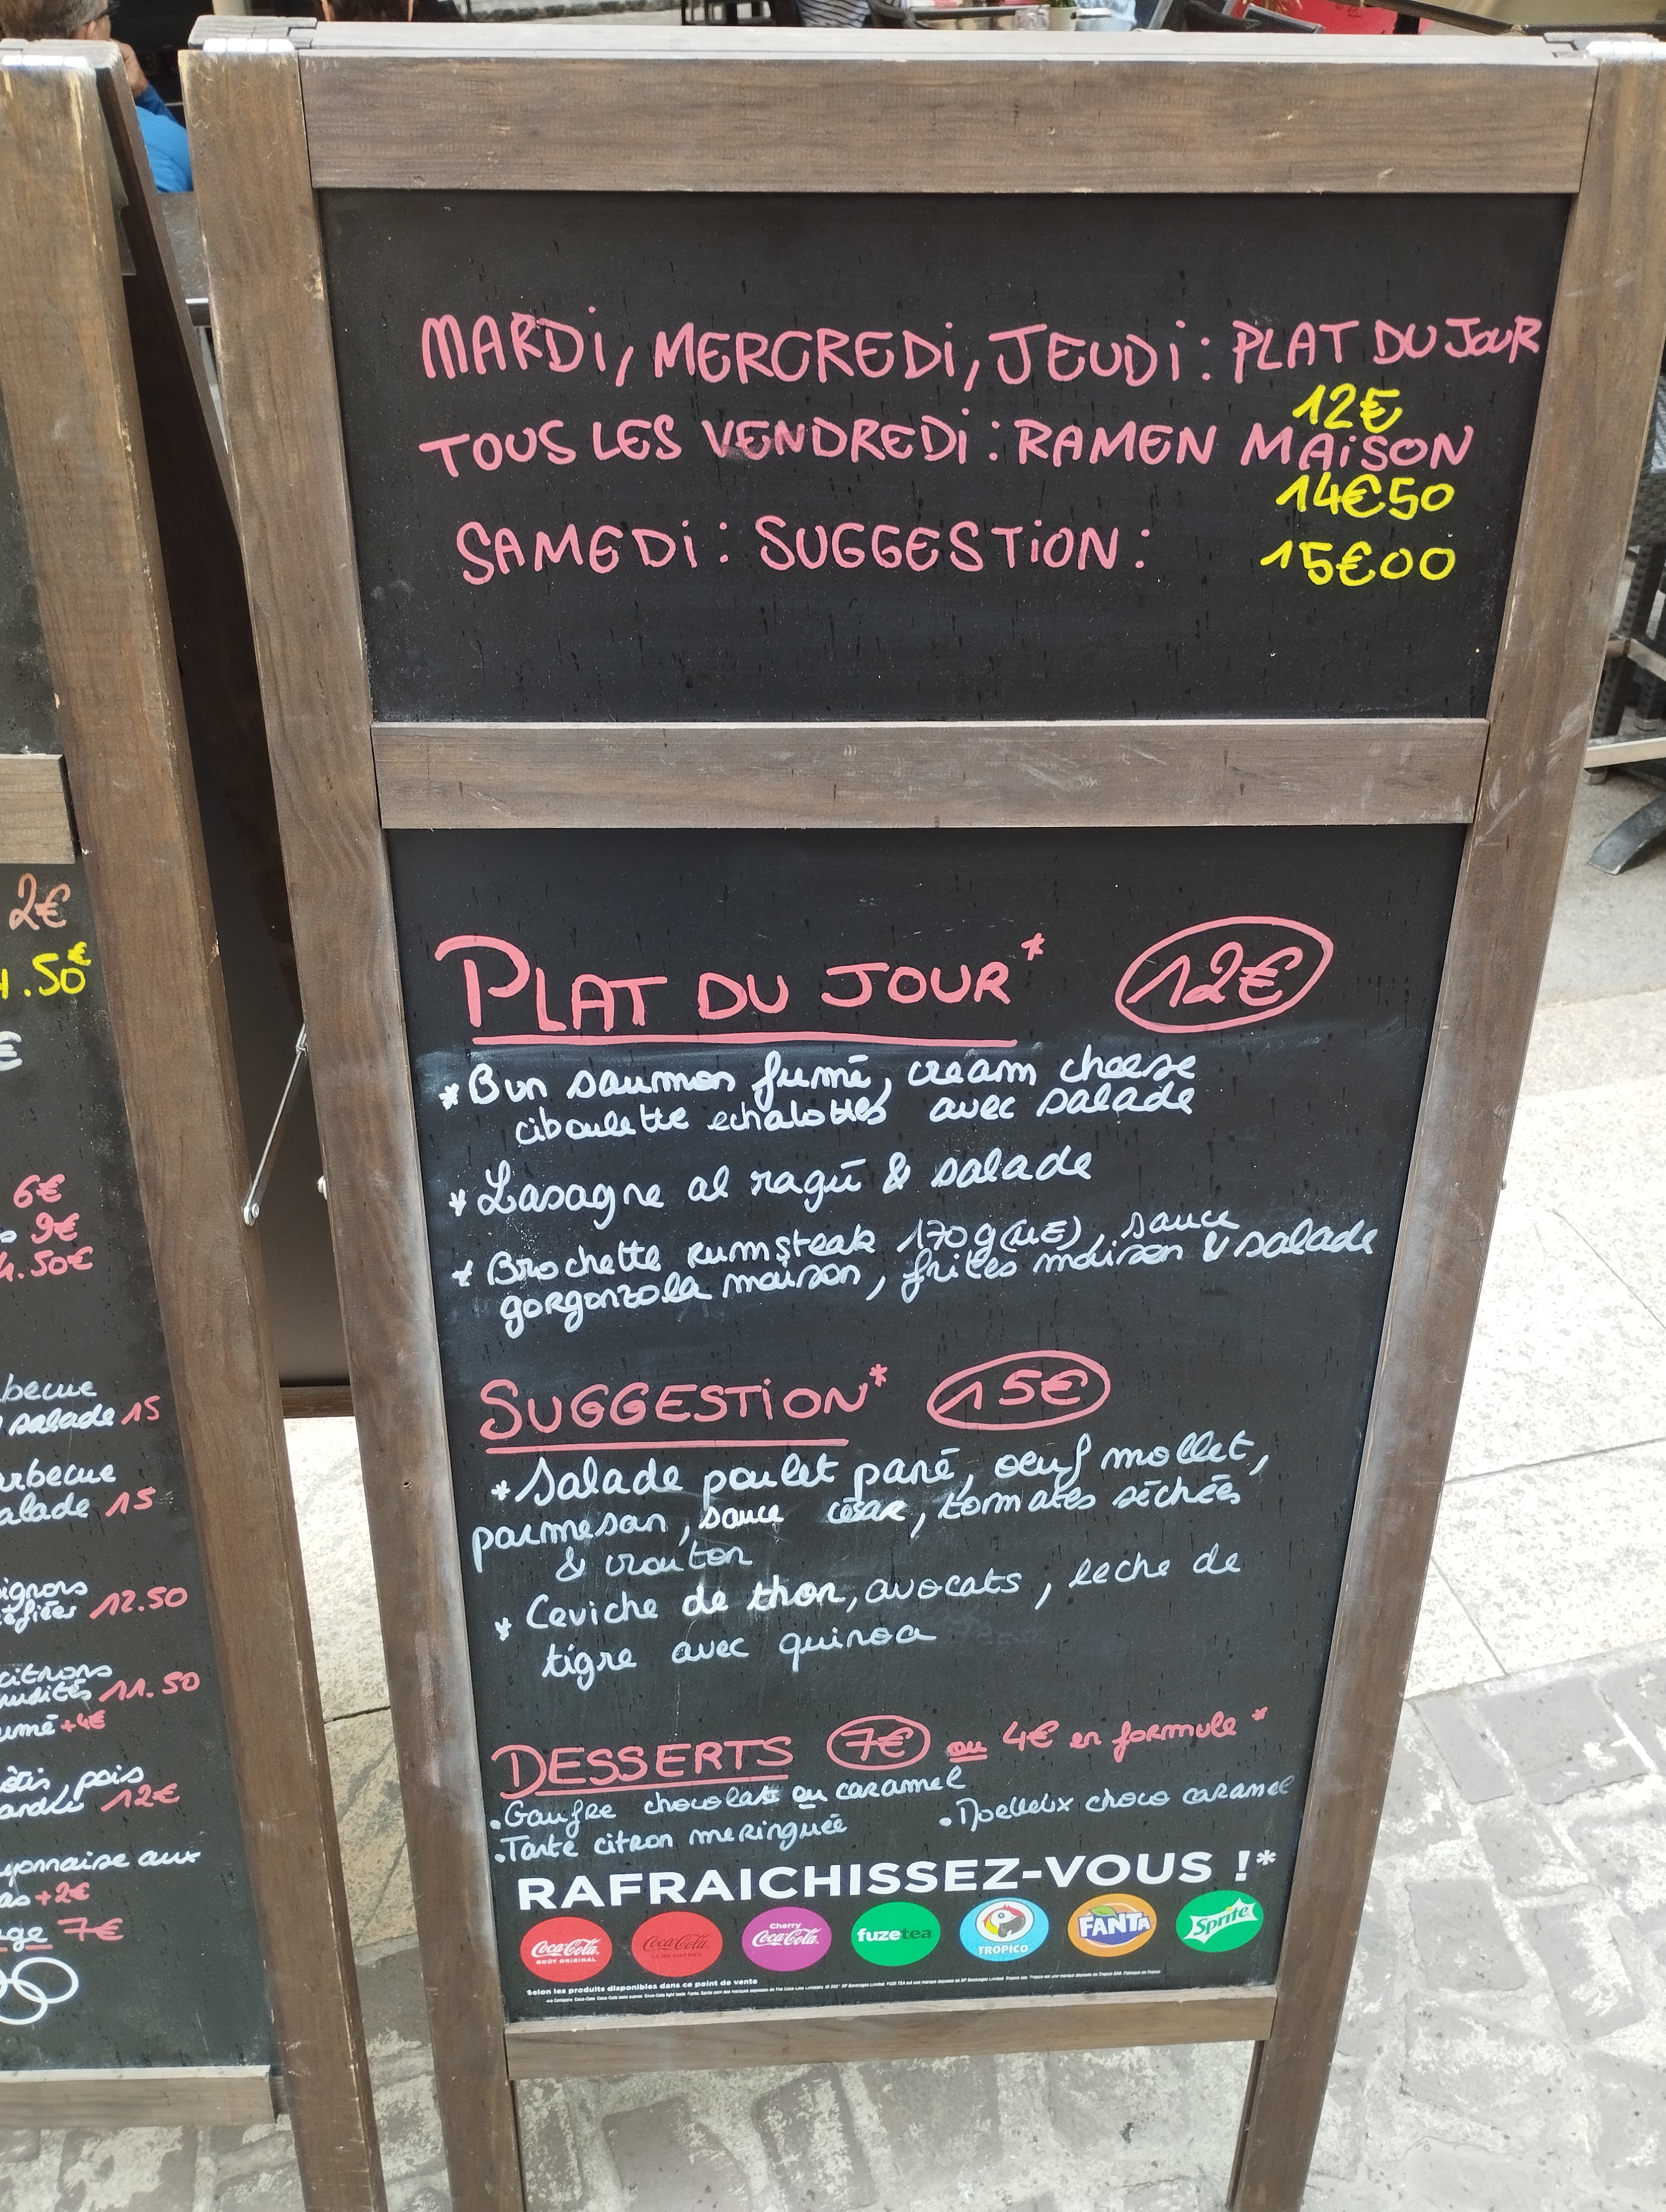 MARDi, MERCREDi, JEUDi : PLAT DU JOUR
12€
TOUS LES VENDREDi : RAMEN MAiSON
14€50
SAMEDi : SUGGESTiON : 15€00
PLAT DU JOUR* 12€
* Bun saumon fumé, cream cheese
ciboulette echalottes avec salade
* Lasagne al ragū & salade
* Brochette rumsteak 170g (UE), sauce
gorgonzola maison, frites maison & salade
SUGGESTiON* 15€
* Salade poulet pané, oeuf mollet,
parmesan, sauce césar, tomates séchées
& crouton
* Ceviche de thon, avocats, leche de
tigre avec quinoa
DESSERTS 7€ ou 4€ en formule *
. Gaufre chocolat ou caramel
. Moelleux choco caramel
. Tarte citron meringuée
RAFRAICHISSEZ-VOUS !*
Coca-Cola GOÛT ORIGINAL
Coca-Cola SANS SUCRES
Cherry Coca-Cola
fuzetea
TROPICO
FANTA
Sprite
Selon les produits disponibles dans ce point de vente
2€
.50€
€
6€
9€
4.50€
salade 15
15
12.50
citrons
11.50
+4€
pois
12€
aux
+2€
7€